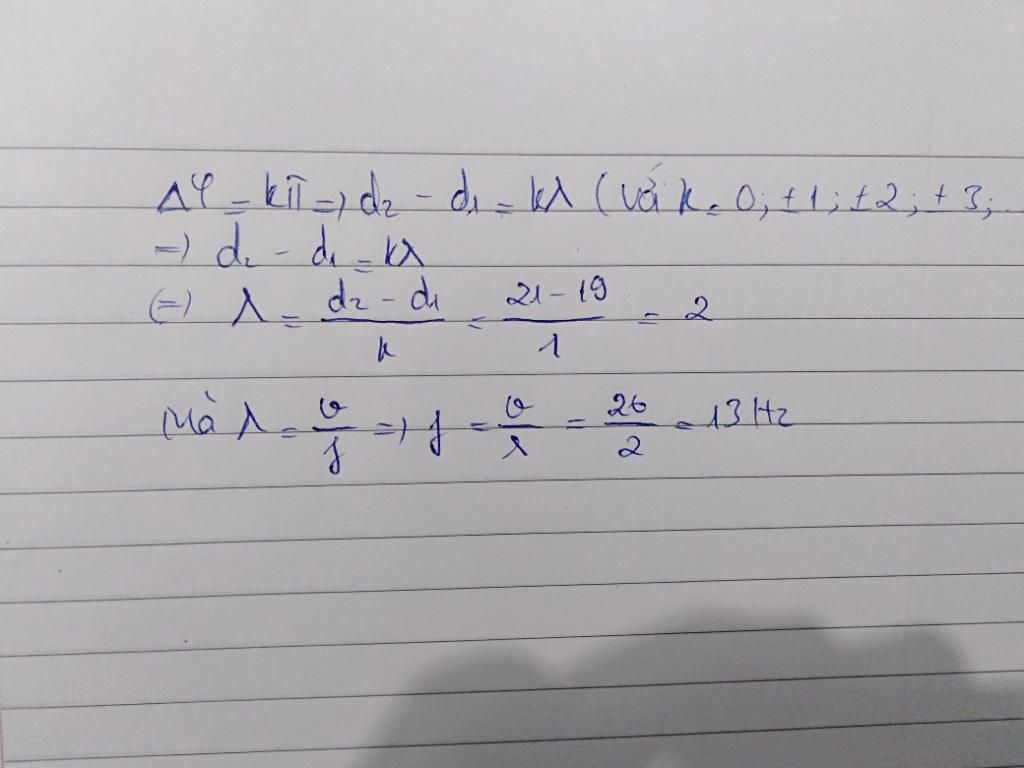 Δφ = kπ => d₂ - d₁ = kλ (với k = 0; ±1; ±2; ± 3; ...
=> d₂ - d₁ = kλ
(=) λ = (d₂ - d₁)/k = (21 - 19)/1 = 2
Mà λ = v/f => f = v/λ = 26/2 = 13 Hz